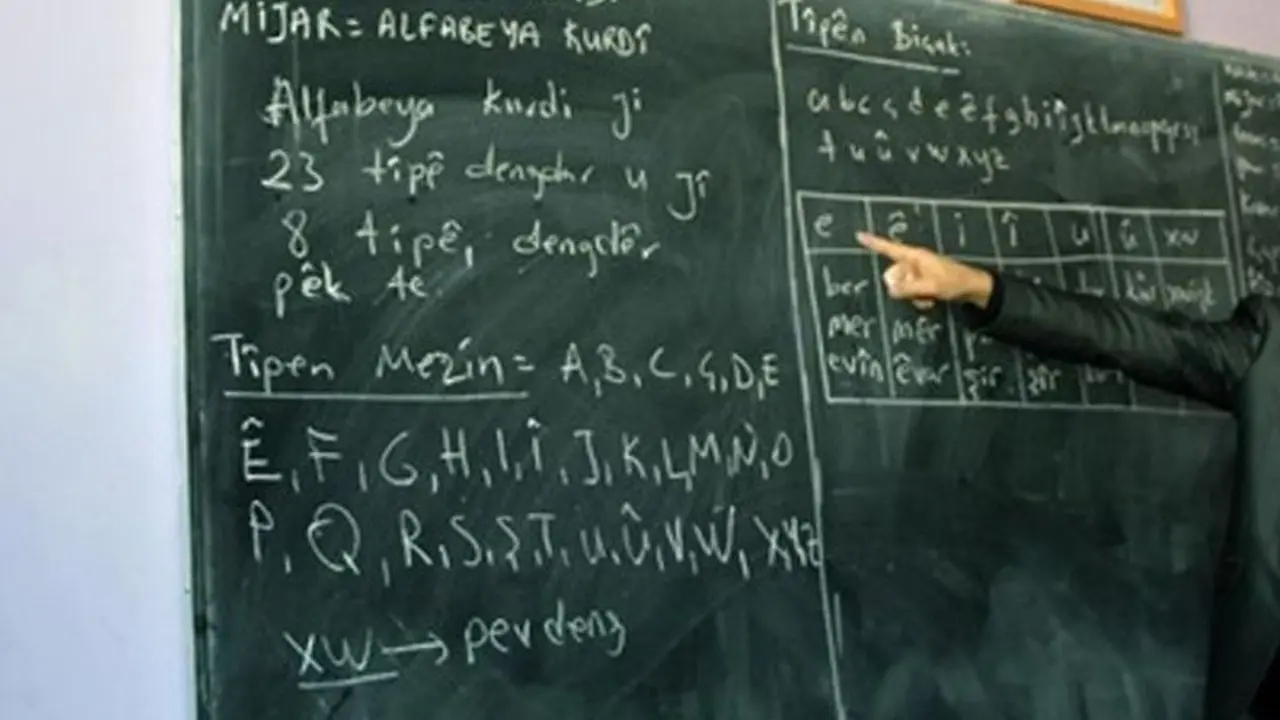 MIJAR = ALFABEYA KURDÎ
Alfabeya kurdi ji
23 tîpê dengdar u jî
8 tîpê, dengdêr
pêk tê
Tîpen Mezin = A, B, C, Ç, D, E
Ê, F, G, H, I, Î, J, K, L, M, N, O
P, Q, R, S, Ş, T, U, Û, V, W, X, Y, Z
xw → pevdeng
Tîpên Biçuk:
a b c ç d e ê f g h i î j k l m n o p q r s ş
t u û v w x y z
e ê i î u û xw
ber kûr
mer mêr
evîn êvar zir zîr